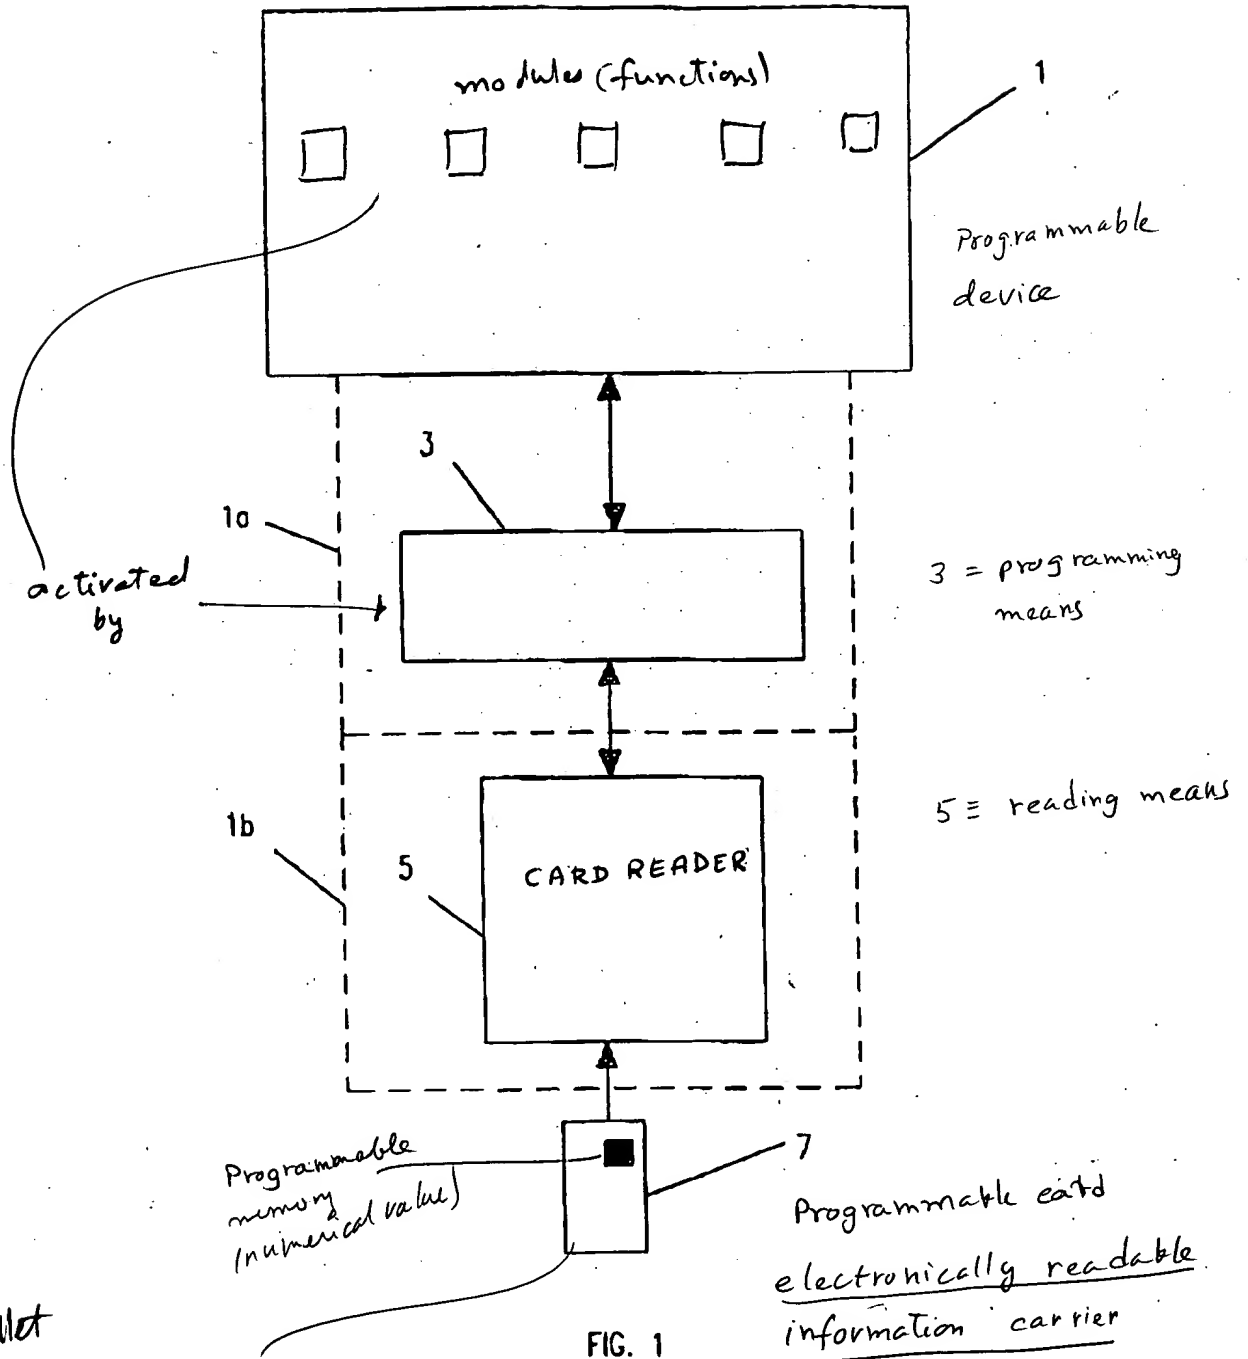 modules (functions)
1
Programmable
device
3
1a
activated
by
3 = programming
means
1b
5
5 ≡ reading means
CARD READER
Programmable
memory
(numerical value)
7
Programmable card
electronically readable
information carrier
FIG. 1